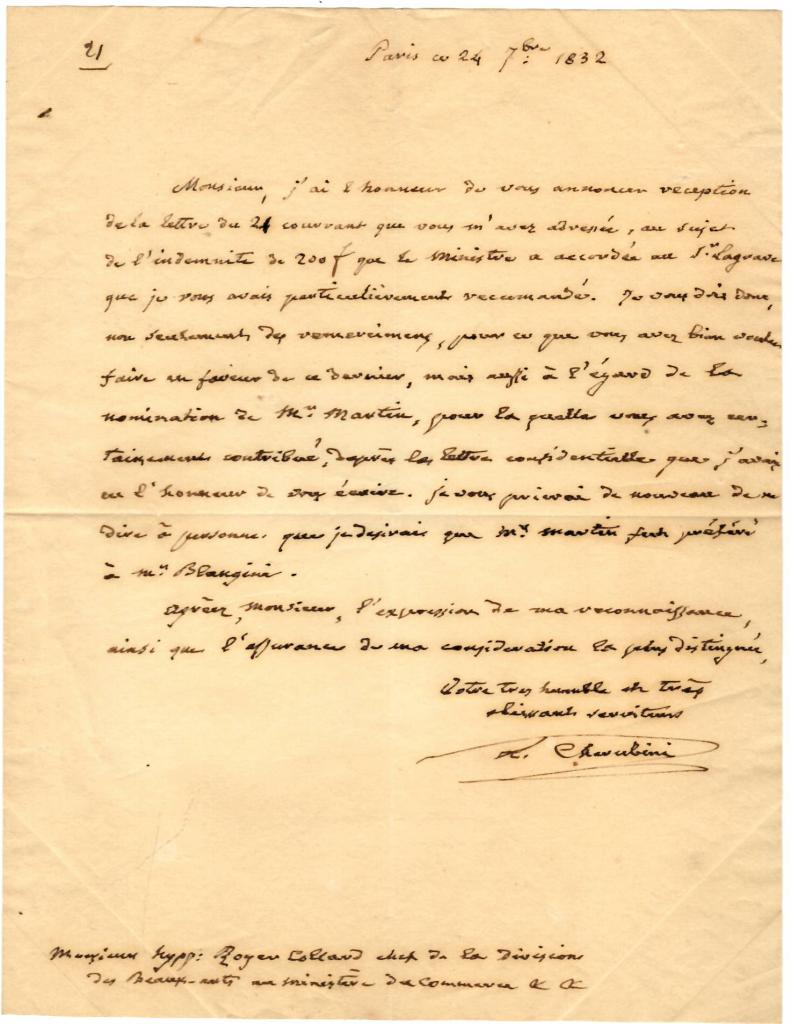 21
Paris ce 24 7bre 1832
Monsieur, j'ai l'honneur de vous annoncer reception
de la lettre du 21 courrant que vous m'avez adressée, au sujet
de l'indemnité de 200 f que le Ministre a accordée au Sr. Lagrave
que je vous avais particulièrement recomandé. Je vous dois donc,
non seulement des remercimens, pour ce que vous avez bien voulu
faire en faveur de ce dernier, mais aussi à l'égard de la
nomination de Mr. Martin, pour la quelle vous avez cer-
tainement contribué, d'après la lettre confidentielle que j'avais
eu l'honneur de vous écrire. je vous prierai de nouveau de ne
dire à personne que je desirais que Mr. Martin fut préféré
à Mr. Blangini.
Agréez, Monsieur, l'expression de ma reconnaissance,
ainsi que l'assurance de ma consideration la plus distinguée,
Votre tres humble et très
obeissant serviteur
L. Cherubini
Monsieur hypp: Royer Collard chef de la Division
des Beaux-arts au ministère du Commerce & &